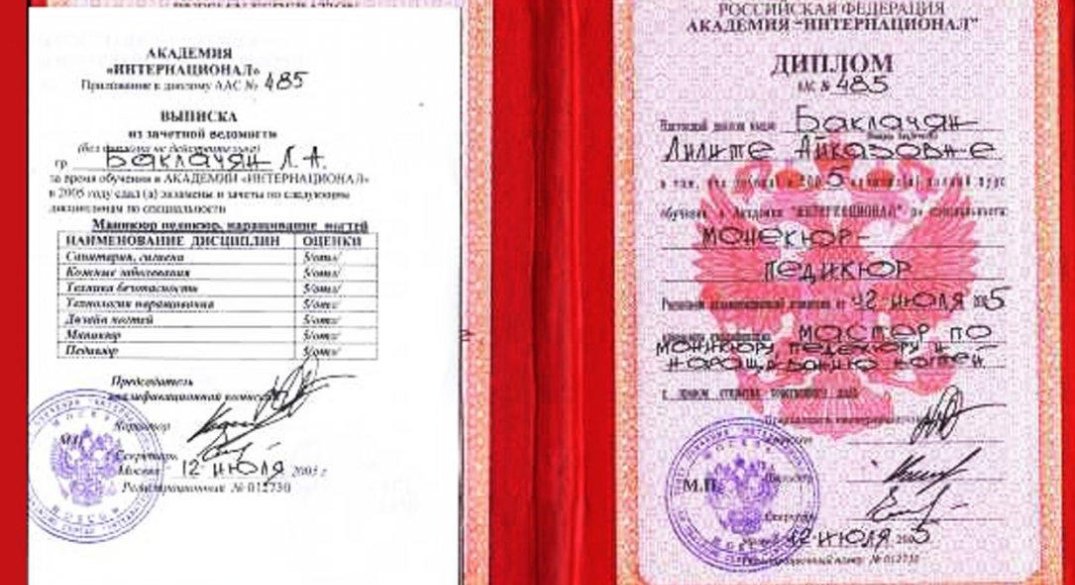 АКАДЕМИЯ
«ИНТЕРНАЦИОНАЛ»
Приложение к диплому ААС № 485
ВЫПИСКА
из зачетной ведомости
(без диплома не действительна)
гр Баклачян Л.А.
за время обучения в АКАДЕМИИ «ИНТЕРНАЦИОНАЛ»
в 2005 году сдал (а) экзамены и зачеты по следующим
дисциплинам по специальности
Маникюр педикюр, наращивание ногтей
НАИМЕНОВАНИЕ ДИСЦИПЛИН ОЦЕНКИ
Санитария, гигиена 5/отл/
Кожные заболевания 5/отл/
Техника безопасность 5/отл/
Технология наращивания 5/отл/
Дизайн ногтей 5/отл/
Маникюр 5/отл/
Педикюр 5/отл/
Председатель
квалификационной комиссии
Директор
Секретарь
М.П.
Москва 12 июля 2005 г
Регистрационный № 012730
МОСКВА
РОССИЙСКАЯ ФЕДЕРАЦИЯ
АКАДЕМИЯ "ИНТЕРНАЦИОНАЛ"
ДИПЛОМ
ААС № 485
Настоящий диплом выдан Баклачян
Лилите Айказовне
в том, что
2005 полный курс
обучения в Академии "ИНТЕРНАЦИОНАЛ" по специальности
Монекюр-
педикюр
Решением от 12 июля 2005
мастер по
моникюру педекюру и
наращиванию ногтей
Секретарь
М.П.
Москва 12 июля 2005
Регистрационный номер № 012730
МОСКВА